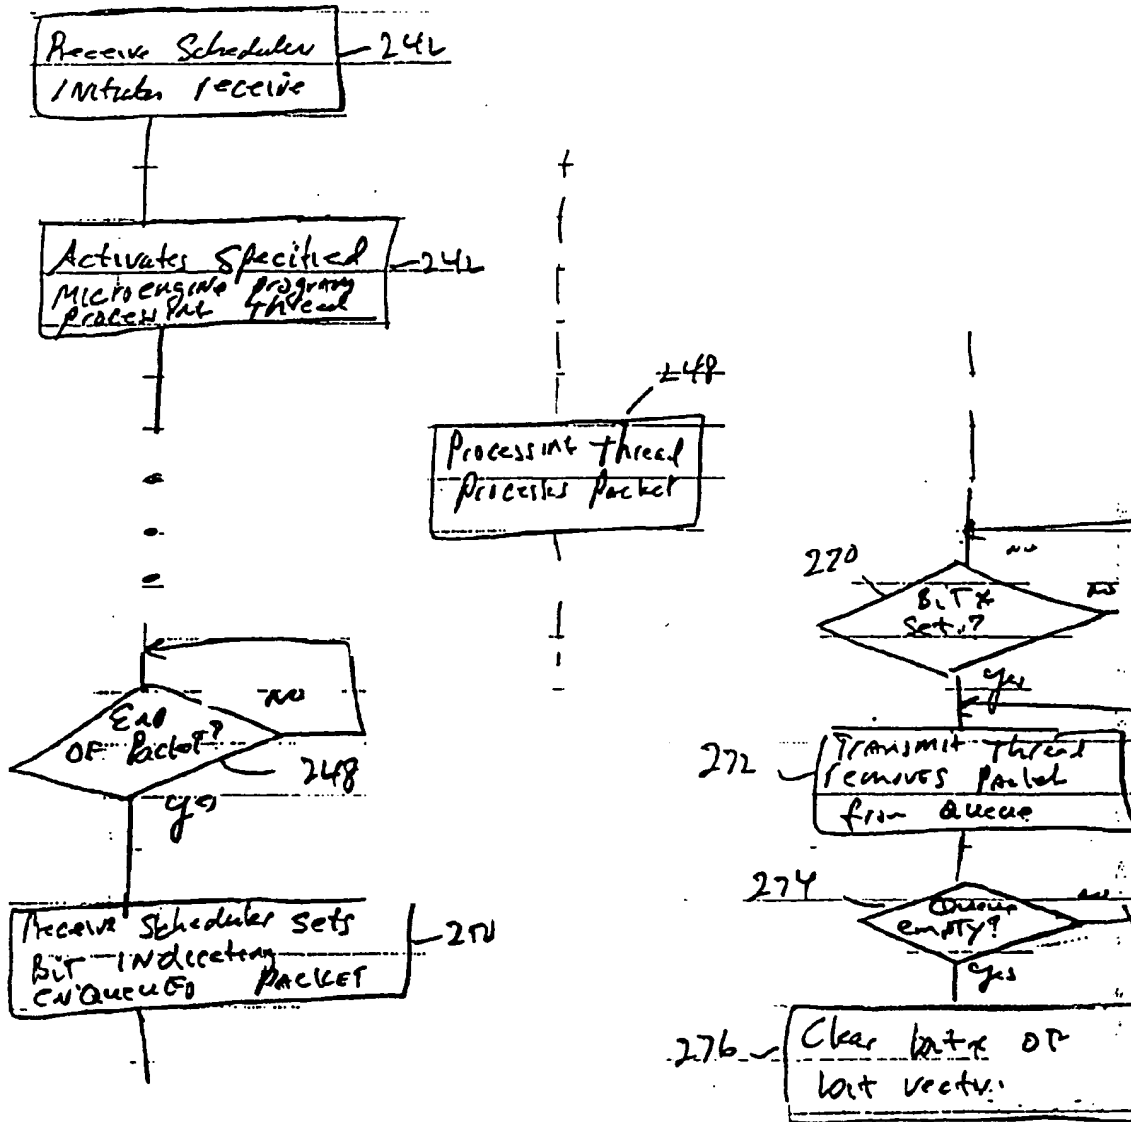 Receive Scheduler
Initiates receive
242
Activates Specified
Microengine program
processing thread
242
248
Processing thread
Processes Packet
End
OF Packet?
NO
248
yes
Receive Scheduler Sets
BIT INdicating
ENQUEUED PACKET
270
BIT x
Set?
NO
NO
yes
272
Transmit Thread
removes Packet
from Queue
274
Queue
empty?
NO
yes
276
Clear bit x OF
bit vector